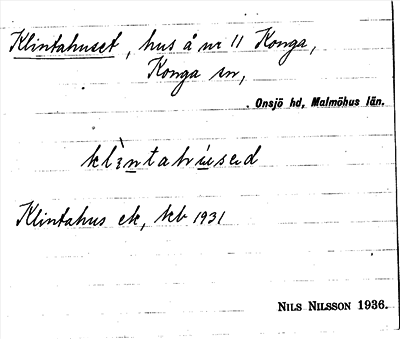 Klintahuset, hus å nr 11 Konga,
Konga sn,
Onsjö hd, Malmöhus län.
Klintahus ek, kb 1931
NILS NILSSON 1936.